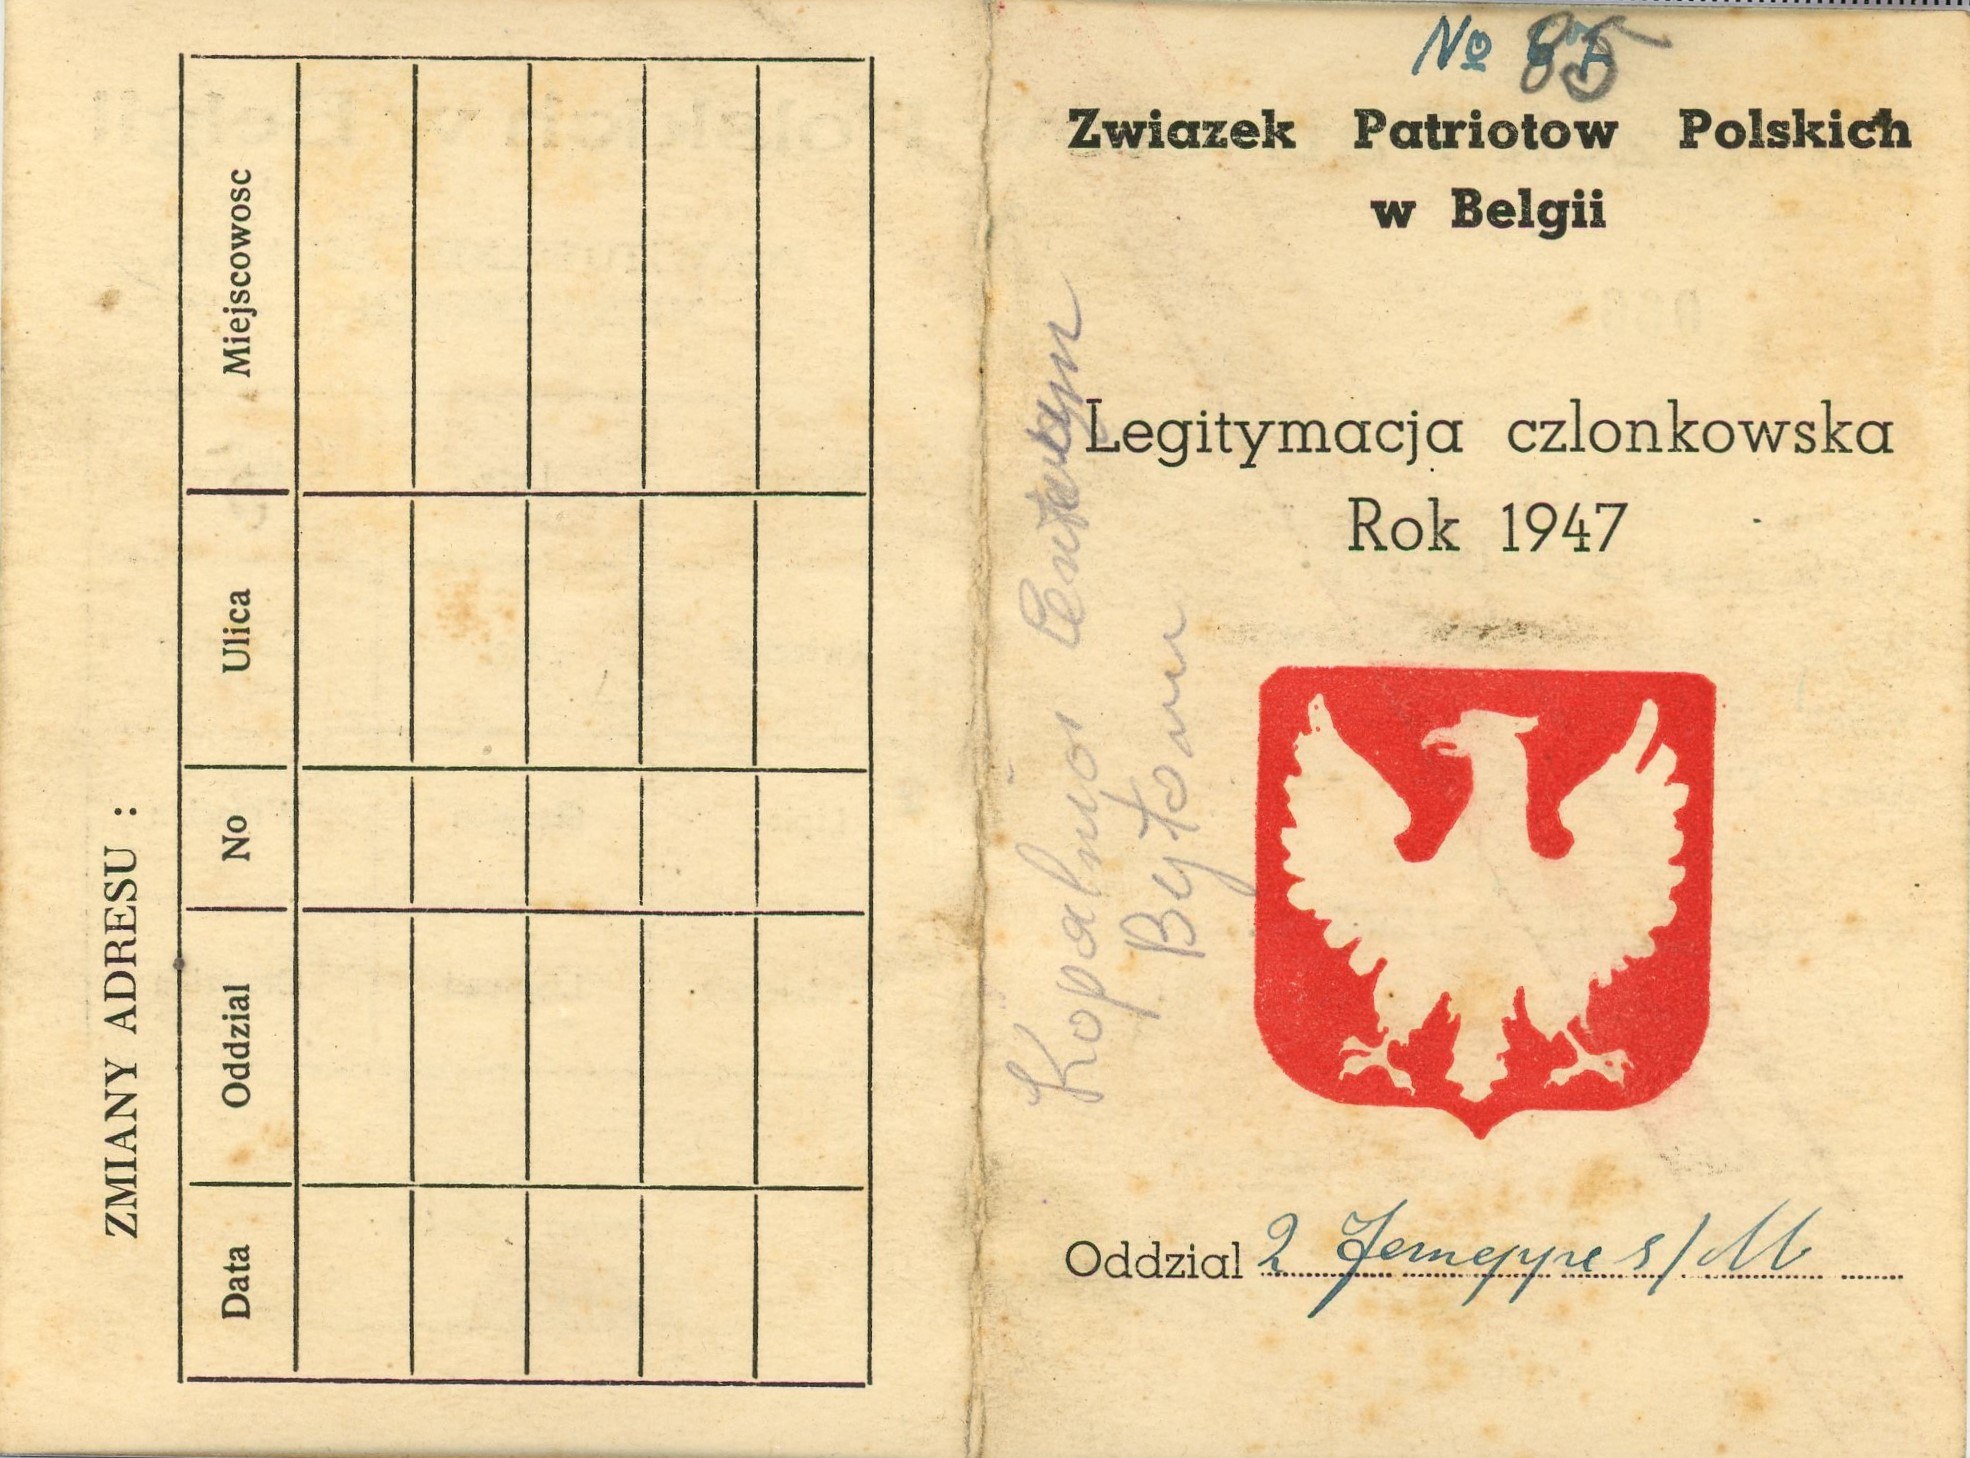 ZMIANY ADRESU :
Data Oddzial No Ulica Miejscowosc
No 85
Zwiazek Patriotow Polskich
w Belgii
Legitymacja czlonkowska
Rok 1947
Kopalnia Centrum
Bytom
Oddzial 2 Jemeppe s/M